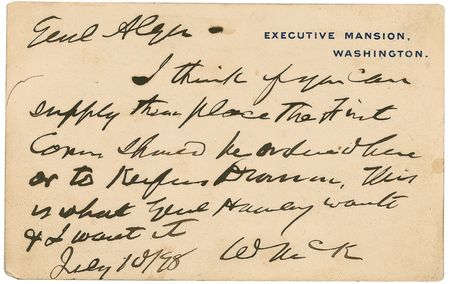 Genl Alger -
EXECUTIVE MANSION,
WASHINGTON.
I think if you can
supply their place the First
Conn should be ordered here
or to This
is what Genl Hawley wants
& I want it
July 10/98 WMcK